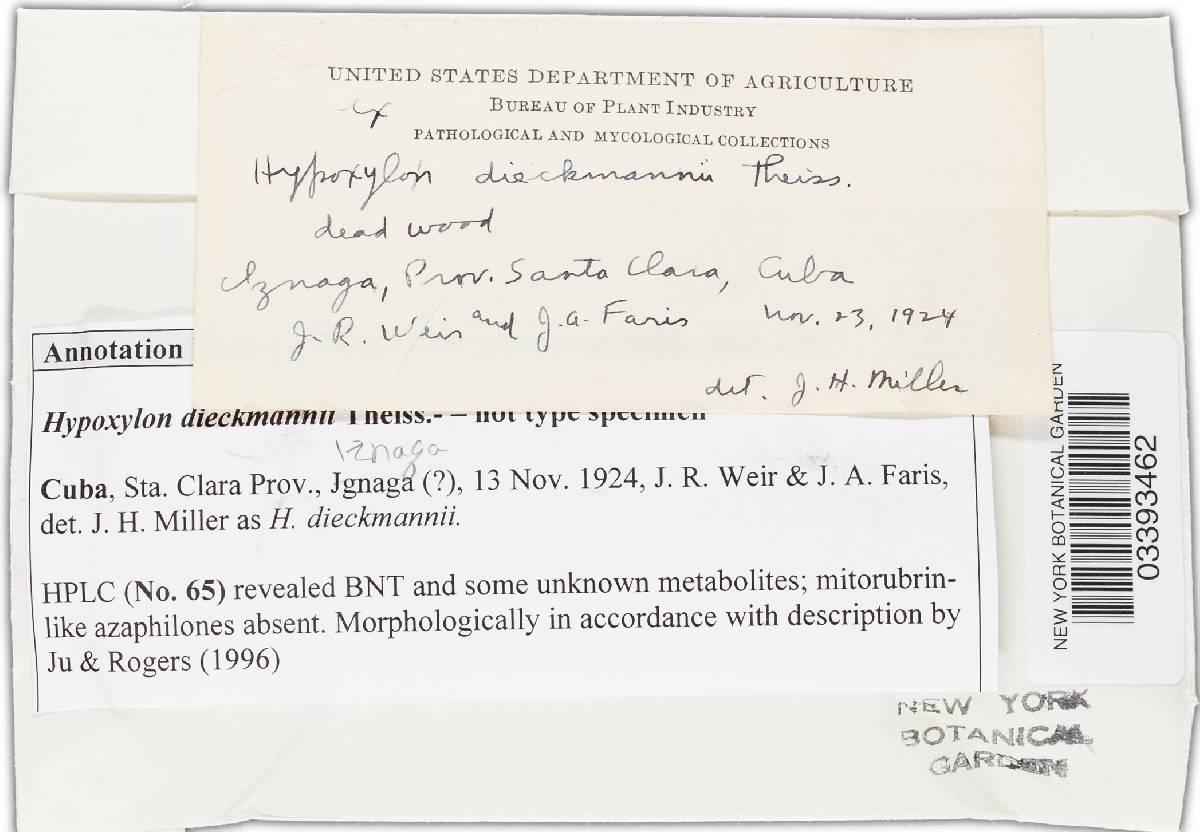 UNITED STATES DEPARTMENT OF AGRICULTURE
ex
BUREAU OF PLANT INDUSTRY
PATHOLOGICAL AND MYCOLOGICAL COLLECTIONS
Hypoxylon dieckmannii Theiss.
dead wood
Iznaga, Prov. Santa Clara, Cuba
J. R. Weir and J. A. Faris Nov. 23, 1924
det. J. H. Miller
Annotation
Hypoxylon dieckmannii Theiss.- – not type specimen
Iznaga
Cuba, Sta. Clara Prov., Jgnaga (?), 13 Nov. 1924, J. R. Weir & J. A. Faris,
det. J. H. Miller as H. dieckmannii.
HPLC (No. 65) revealed BNT and some unknown metabolites; mitorubrin-
like azaphilones absent. Morphologically in accordance with description by
Ju & Rogers (1996)
NEW YORK BOTANICAL GARDEN
03393462
NEW YORK
BOTANICAL
GARDEN